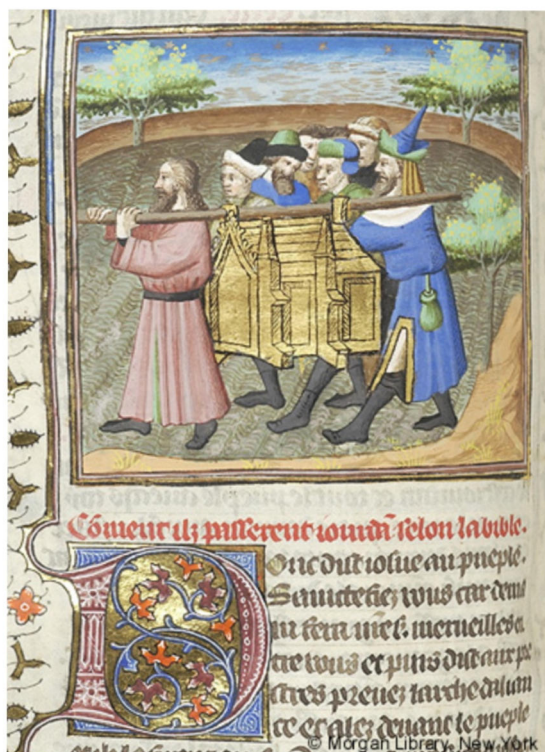 Cōment ilz passerent iourdā selon la bible.
Donc dist iosue au pueple.
Saintefiez vous car demā
n̄re s̄. merueilles en
tre vous et puis dist aux p̄
stres prenez larche dalian
ce et alez deuant le pueple
© Morgan Library, New York